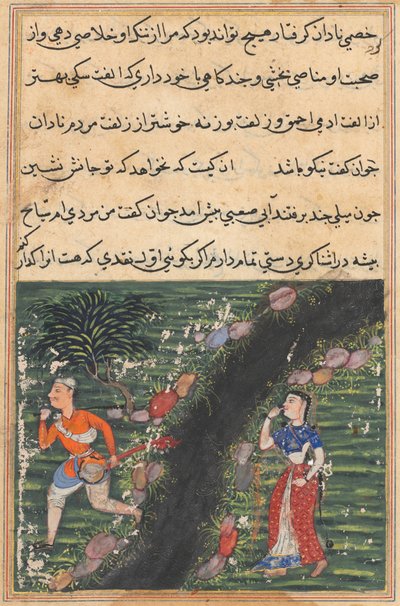 خصمي نادان گرفتار هیچ تواند بود که مرا از ننک او خلاصی دهی و از
صحبت او مناصی بخشی و چند کاهی با خود داری که الفت سکی بهتر
از الفت ادمی احمق و زلف بوزنه خوشتر از زلفت مردم نادان
جوان کفت نیکو باشد ان کیست که نخواهد که تو جانش نشین
جون میلی چند برفتند آبی صعبی پیش امد جوان کفت من مردی ام سباح
بیشه در اشناکری دستی تمام دارم اکر بکوئی اول نقدی که هست انرا کذار